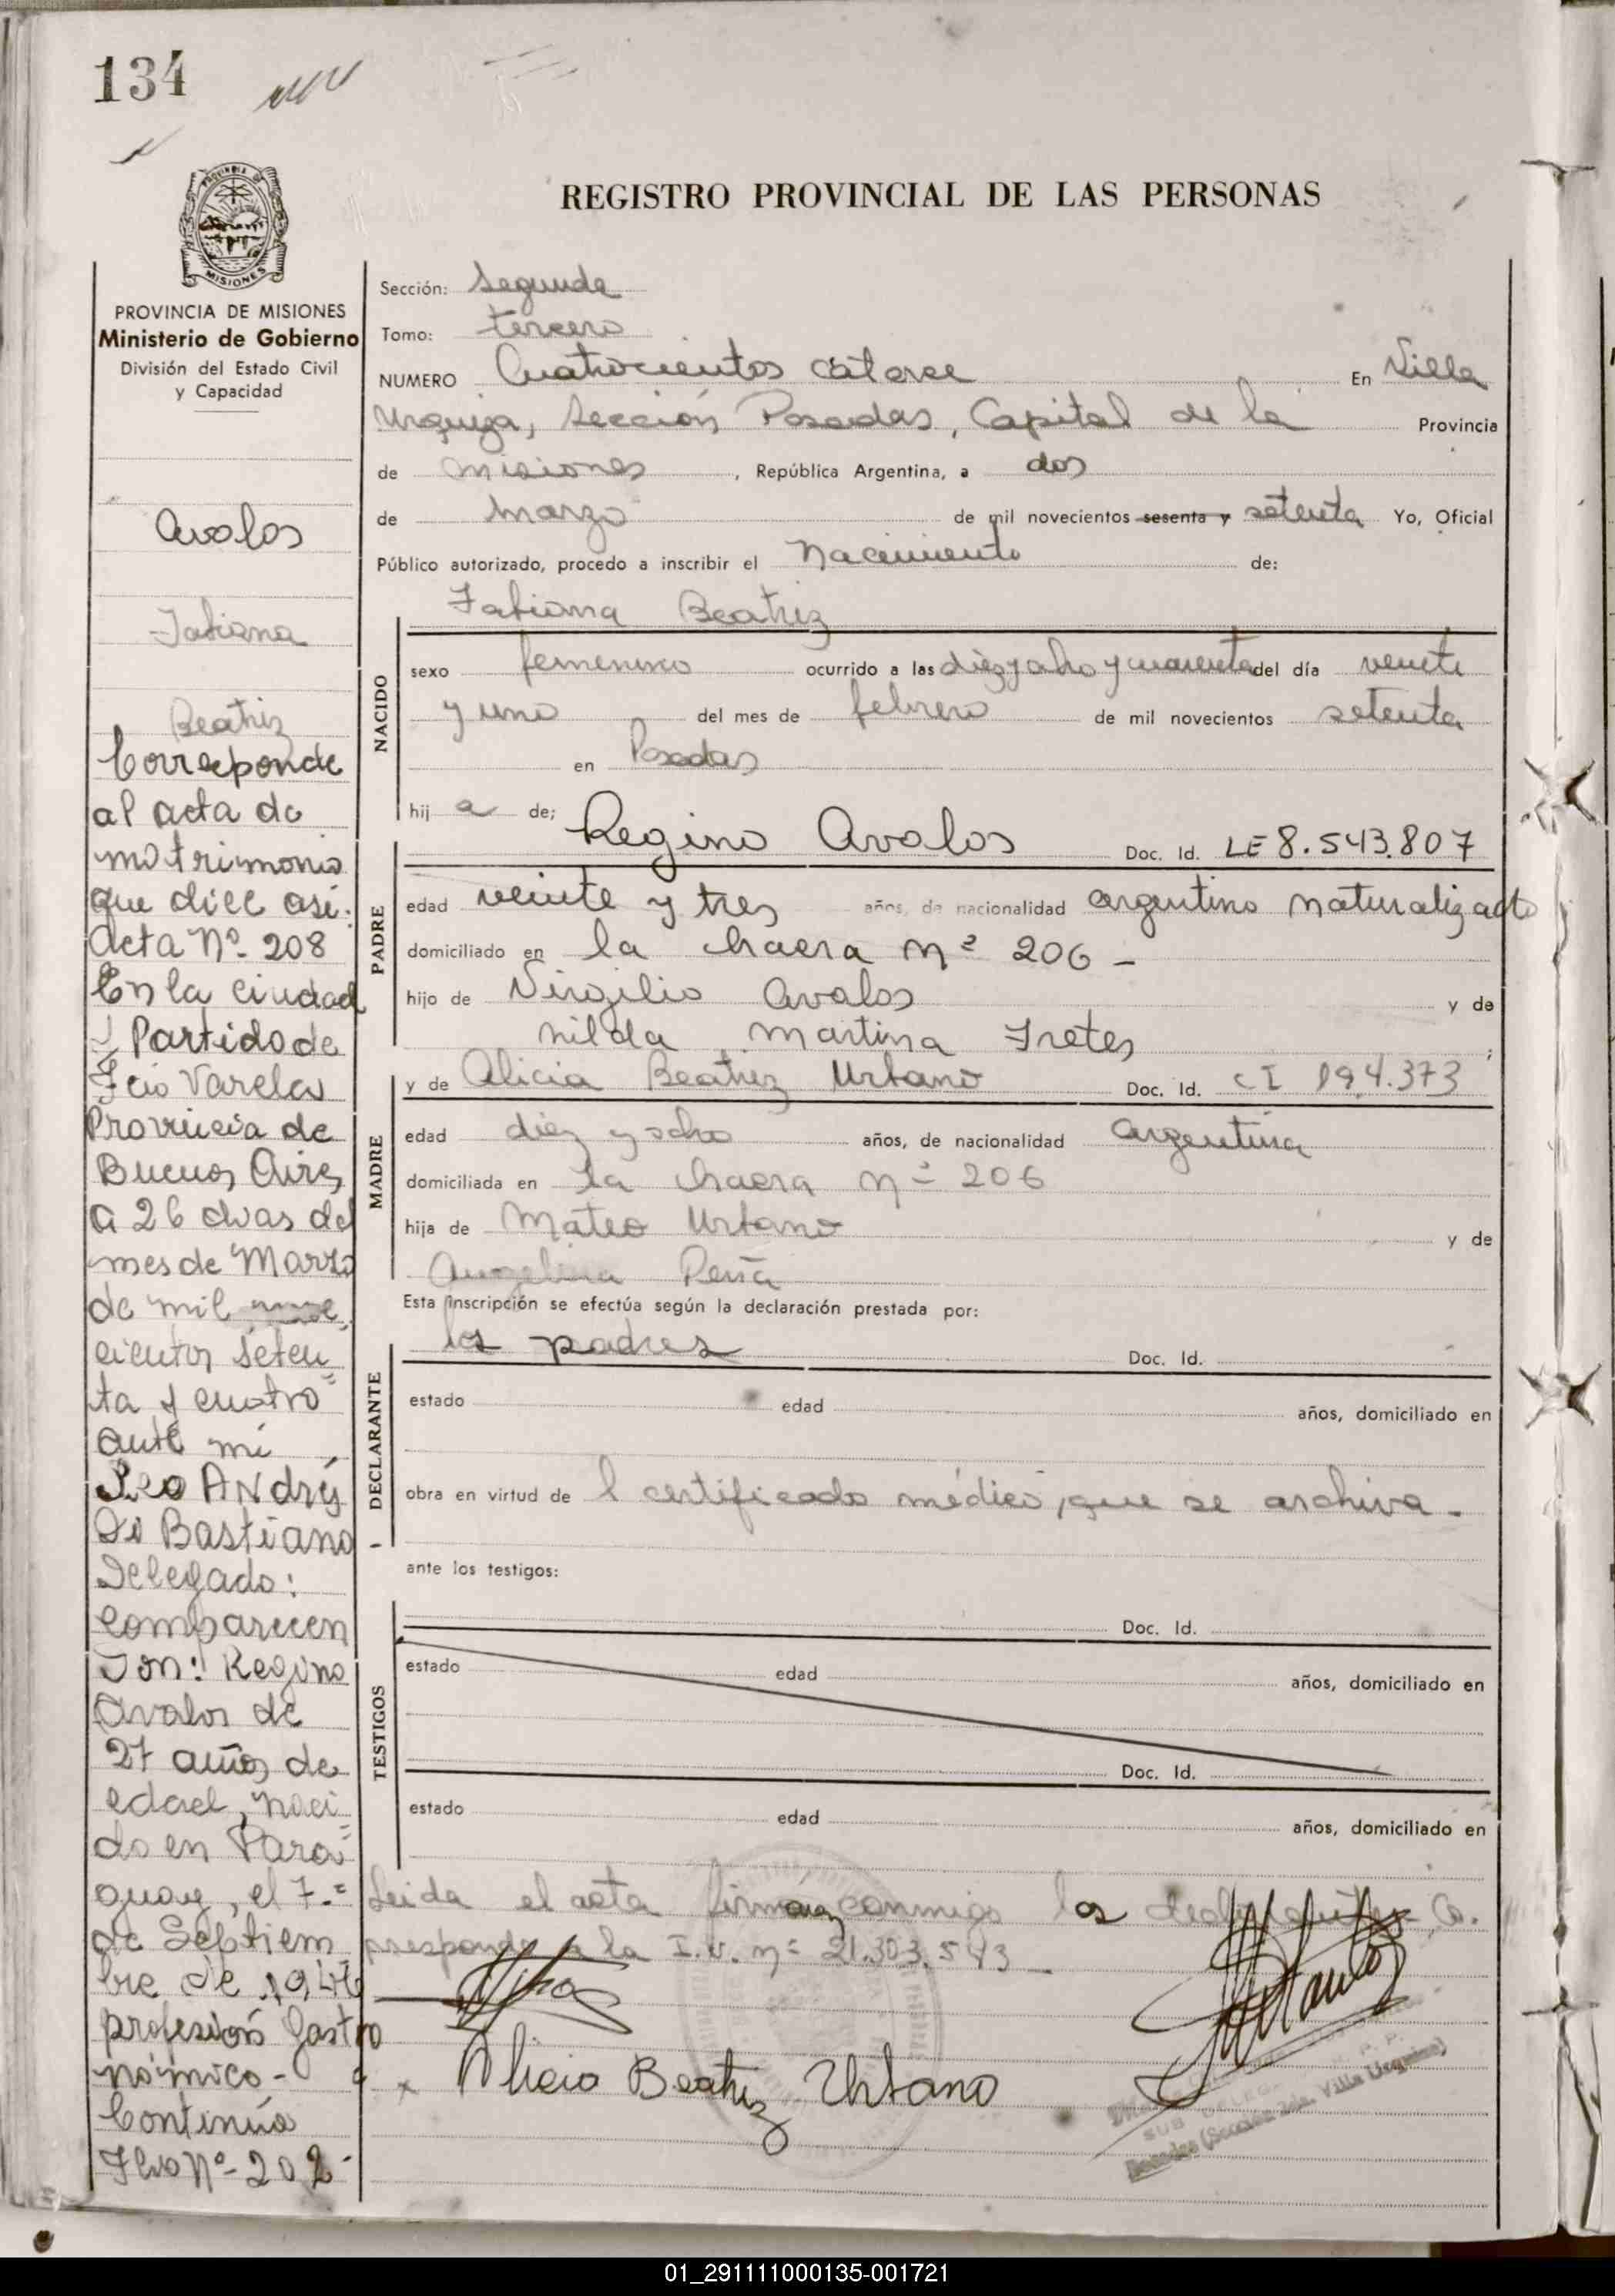 134
REGISTRO PROVINCIAL DE LAS PERSONAS
PROVINCIA DE
MISIONES
PROVINCIA DE MISIONES
Ministerio de Gobierno
División del Estado Civil
y Capacidad
Avalos
Fabiana
Beatriz
Corresponde
al acta de
matrimonio
que dice asi:
Acta Nº 208
En la ciudad
y Partido de
Fcio Varela
Provincia de
Buenos Aires
a 26 dias del
mes de Marzo
de mil nove
cientos seten
ta y cuatro
ante mi
Leo Andrés
Di Bastiano
Delegado:
comparecen
Don: Regino
Avalos de
27 años de
edad, naci
do en Para
guay, el 7
de Septiem
bre de 1946
profesión Gastro
nómico -
Continúa
Flio Nº 202
Sección: Segunda
Tomo: tercero
NUMERO Cuatrocientos catorce En Villa
Urquiza, Sección Posadas, Capital de la Provincia
de Misiones, República Argentina, a dos
de Marzo de mil novecientos sesenta y setenta Yo, Oficial
Público autorizado, procedo a inscribir el Nacimiento de:
Fabiana Beatriz
NACIDO
sexo femenino ocurrido a las diez y ocho y cuarenta del día veinte
y uno del mes de febrero de mil novecientos setenta
en Posadas
hij a de; Regino Avalos Doc. Id. LE 8.543.807
PADRE
edad veinte y tres años, de nacionalidad argentino naturalizado
domiciliado en la chacra nº 206 -
hijo de Virgilio Avalos y de
nilda Martina Fretes;
y de Alicia Beatriz Urbano Doc. Id. CI 194.373
MADRE
edad diez y ocho años, de nacionalidad argentina
domiciliada en la chacra nº 206
hija de Mateo Urbano y de
Angelina Peña
Esta inscripción se efectúa según la declaración prestada por:
los padres Doc. Id.
DECLARANTE
estado edad años, domiciliado en
obra en virtud de l certificado médico, que se archiva -
ante los testigos:
Doc. Id.
TESTIGOS
estado edad años, domiciliado en
Doc. Id.
estado edad años, domiciliado en
Leida el acta firman conmigo los declarantes Co.
rresponde a la I.U. nº 21.303.543 -
Alicia Beatriz Urbano
SUB DELEG.
Posadas (Sección 2da. Villa Urquiza)
01_291111000135-001721